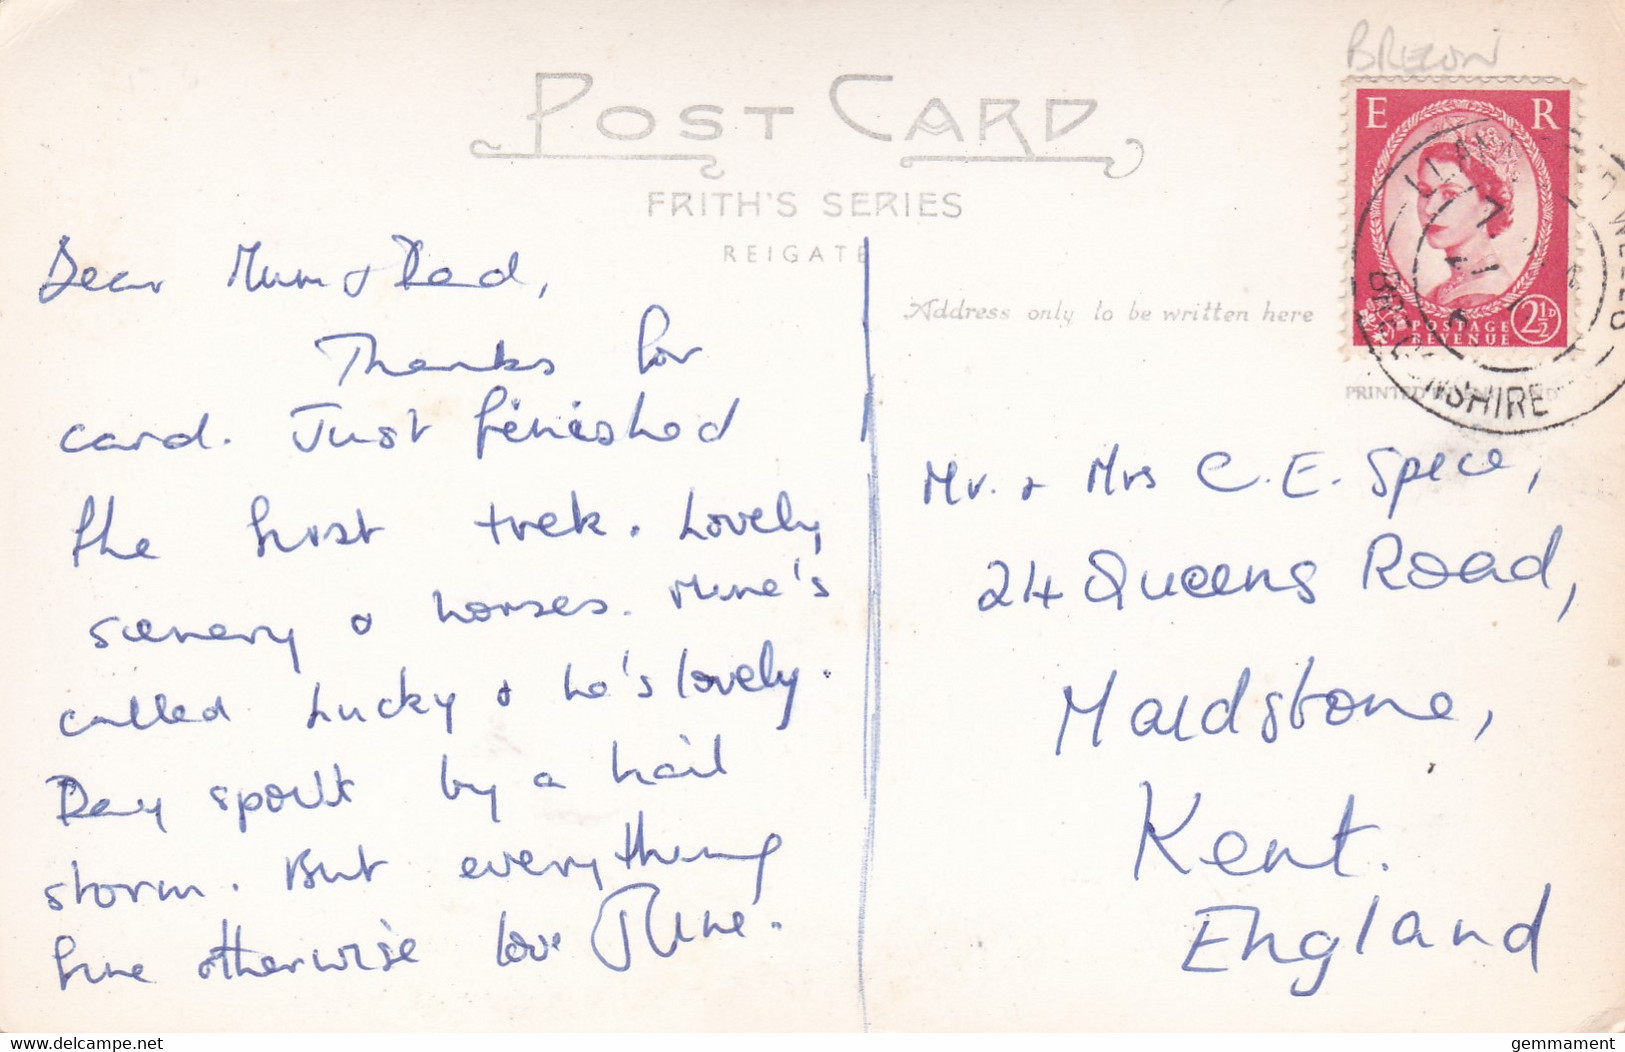 BRECON
POST CARD
FRITH'S SERIES
REIGATE
Address only to be written here
E R
POSTAGE
REVENUE
2½D
PRINTED IN ENGLAND
BRECKNOCKSHIRE
Dear Mum & Dad,
Thanks for
card. Just finished
the first trek. Lovely
scenery & horses. Mine's
called Lucky & he's lovely.
Day spoilt by a hail
storm. But everything
fine otherwise love
Mr. & Mrs C. E. Spice,
24 Queens Road,
Maidstone,
Kent.
England
delcampe.net
gemmament